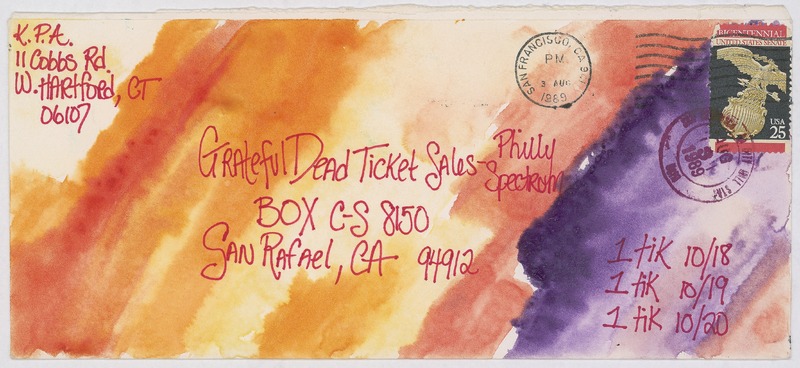 K.P.A.
11 Cobbs Rd.
W. Hartford, CT
06107
SAN FRANCISCO, CA
PM
3 AUG
1989
BICENTENNIAL
UNITED STATES SENATE
USA
25
1989
Grateful Dead Ticket Sales - Philly
Spectrum
BOX C-S 8150
San Rafael, CA 94912
1 tik 10/18
1 tik 10/19
1 tik 10/20